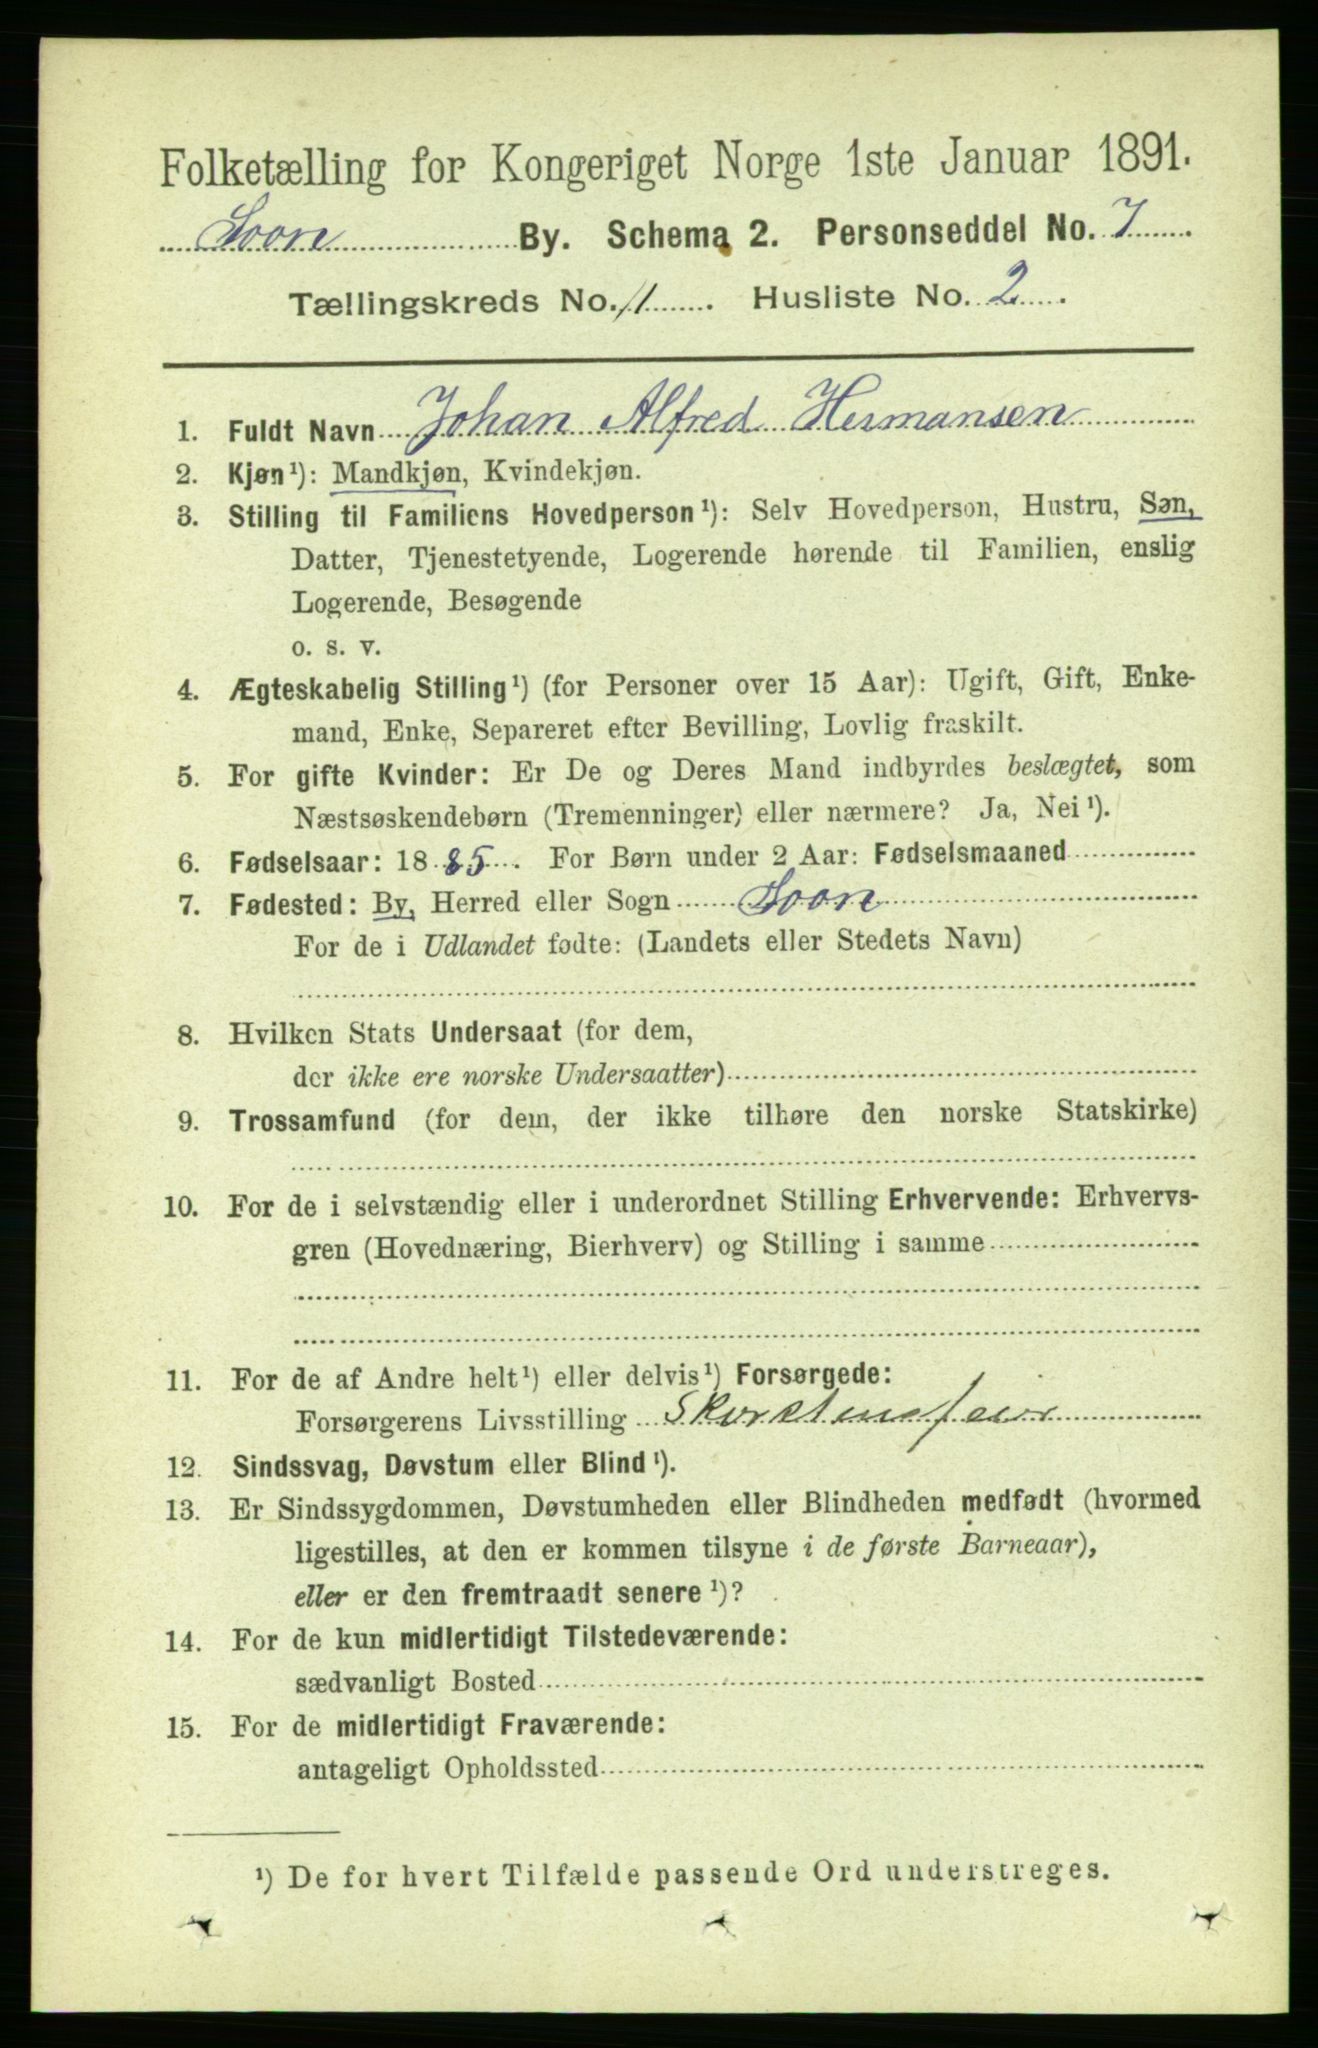 Folketælling for Kongeriget Norge 1ste Januar 1891.
Soon By. Schema 2. Personseddel No. 7
Tællingskreds No. 1. Husliste No. 2.
1. Fuldt Navn Johan Alfred Hermansen
2. Kjøn¹): Mandkjøn, Kvindekjøn.
3. Stilling til Familiens Hovedperson¹): Selv Hovedperson, Hustru, Søn,
Datter, Tjenestetyende, Logerende hørende til Familien, enslig
Logerende, Besøgende
o. s. v.
4. Ægteskabelig Stilling¹) (for Personer over 15 Aar): Ugift, Gift, Enke-
mand, Enke, Separeret efter Bevilling, Lovlig fraskilt.
5. For gifte Kvinder: Er De og Deres Mand indbyrdes beslægtet, som
Næstsøskendebørn (Tremenninger) eller nærmere? Ja, Nei¹).
6. Fødselsaar: 1885. For Børn under 2 Aar: Fødselsmaaned
7. Fødested: By, Herred eller Sogn Soon
For de i Udlandet fødte: (Landets eller Stedets Navn)
8. Hvilken Stats Undersaat (for dem,
der ikke ere norske Undersaatter)
9. Trossamfund (for dem, der ikke tilhøre den norske Statskirke)
10. For de i selvstændig eller i underordnet Stilling Erhvervende: Erhvervs-
gren (Hovednæring, Bierhverv) og Stilling i samme
11. For de af Andre helt¹) eller delvis¹) Forsørgede:
Forsørgerens Livsstilling Skorstensfeier
12. Sindssvag, Døvstum eller Blind¹).
13. Er Sindssygdommen, Døvstumheden eller Blindheden medfødt (hvormed
ligestilles, at den er kommen tilsyne i de første Barneaar),
eller er den fremtraadt senere¹)?
14. For de kun midlertidigt Tilstedeværende:
sædvanligt Bosted
15. For de midlertidigt Fraværende:
antageligt Opholdssted
¹) De for hvert Tilfælde passende Ord understreges.